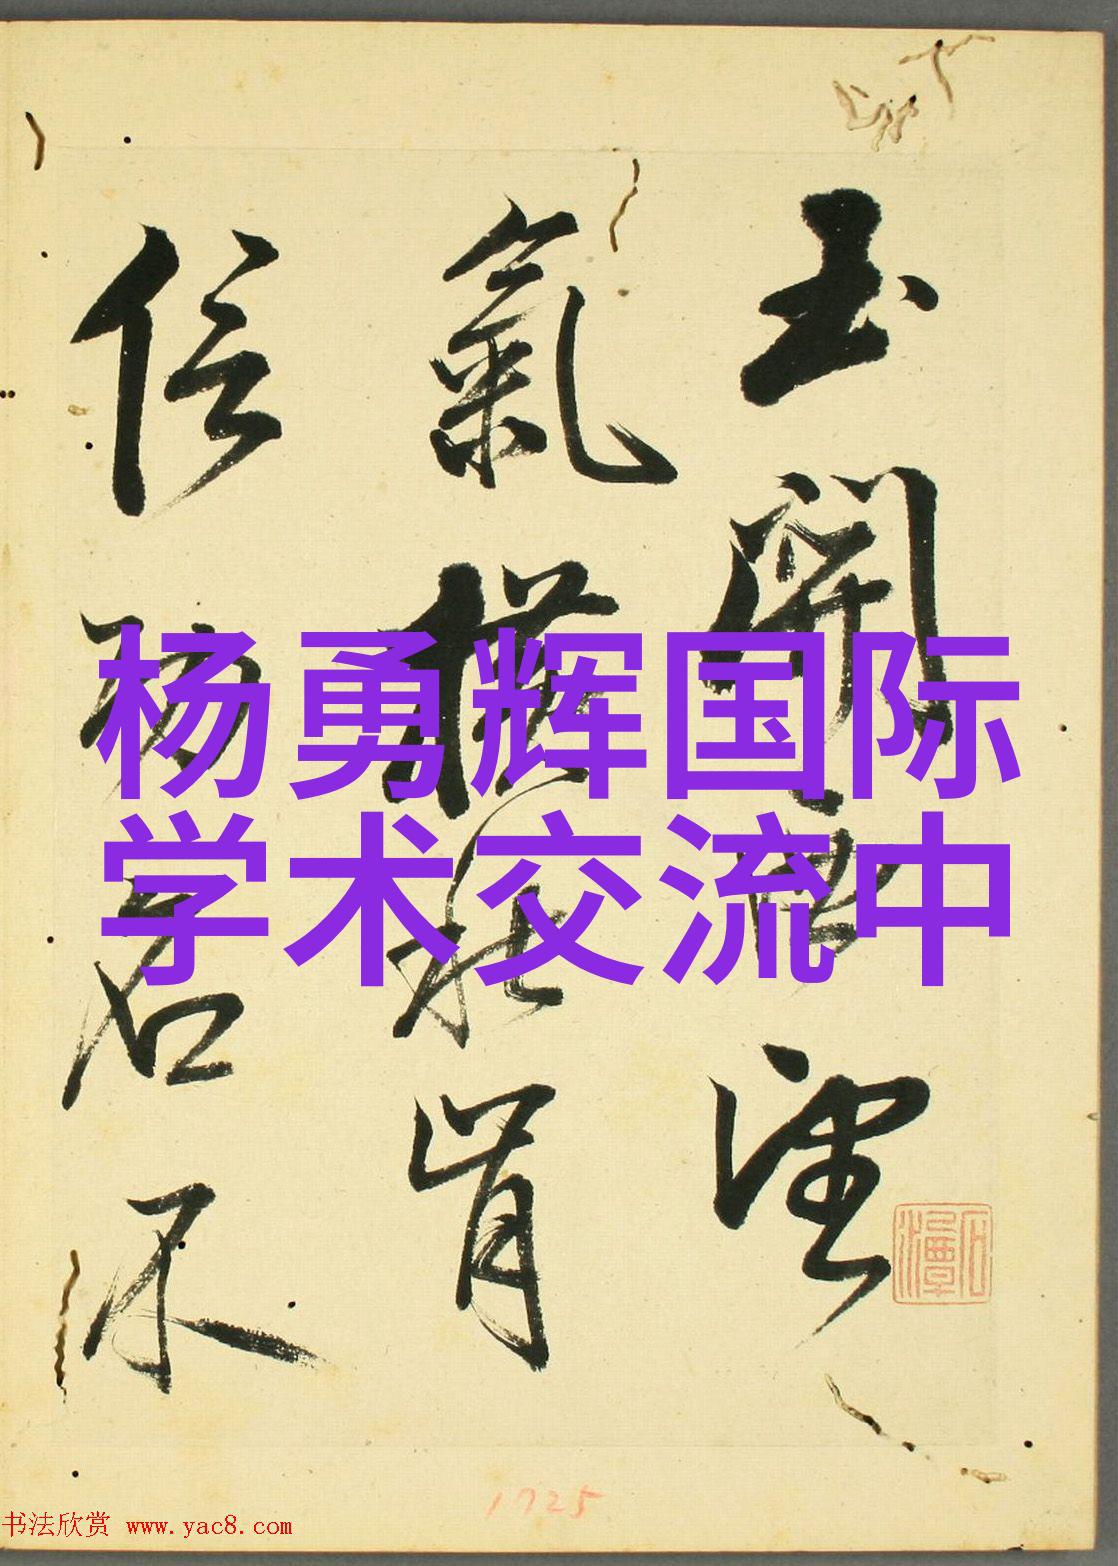 杨勇辉国际
学术交流中
玉開望
氣橫肯
信名不
石潭
1725
书法欣赏 www.yac8.com